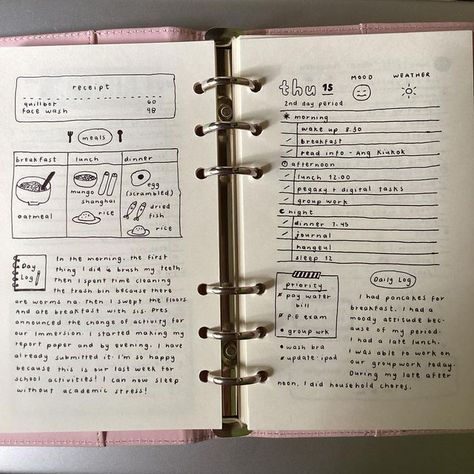 receipt
quillbot 60
face wash 98
meals
breakfast lunch dinner
oatmeal
mungo
shanghai
rice
egg
(scrambled)
dried
fish
rice
Day
Log
In the morning, the first
thing I did is brush my teeth.
Then I spent time cleaning
the trash bin because there
are worms na. Then I swept the floors
and ate breakfast with sis. Pres
announced the change of activity for
our immersion. I started making my
report paper and by evening, I have
already submitted it. I'm so happy
because this is our last week for
school activities! I can now sleep
without academic stress!
thu 15
MOOD
WEATHER
2nd day period
morning
wake up 8.30
breakfast
read info - Ang Kiukok
afternoon
lunch 12.00
pegaxy + digital tasks
group work
night
dinner 7.45
journal
hangeul
sleep 12
priority
pay water
bill
P.E exam
group wrk
wash bra
update ipod
Daily Log
I had pancakes for
breakfast. I had a
moody attitude bec-
ause of my period.
I had a late lunch.
I was able to work on
our groupwork today.
During my late after
noon, I did household chores.